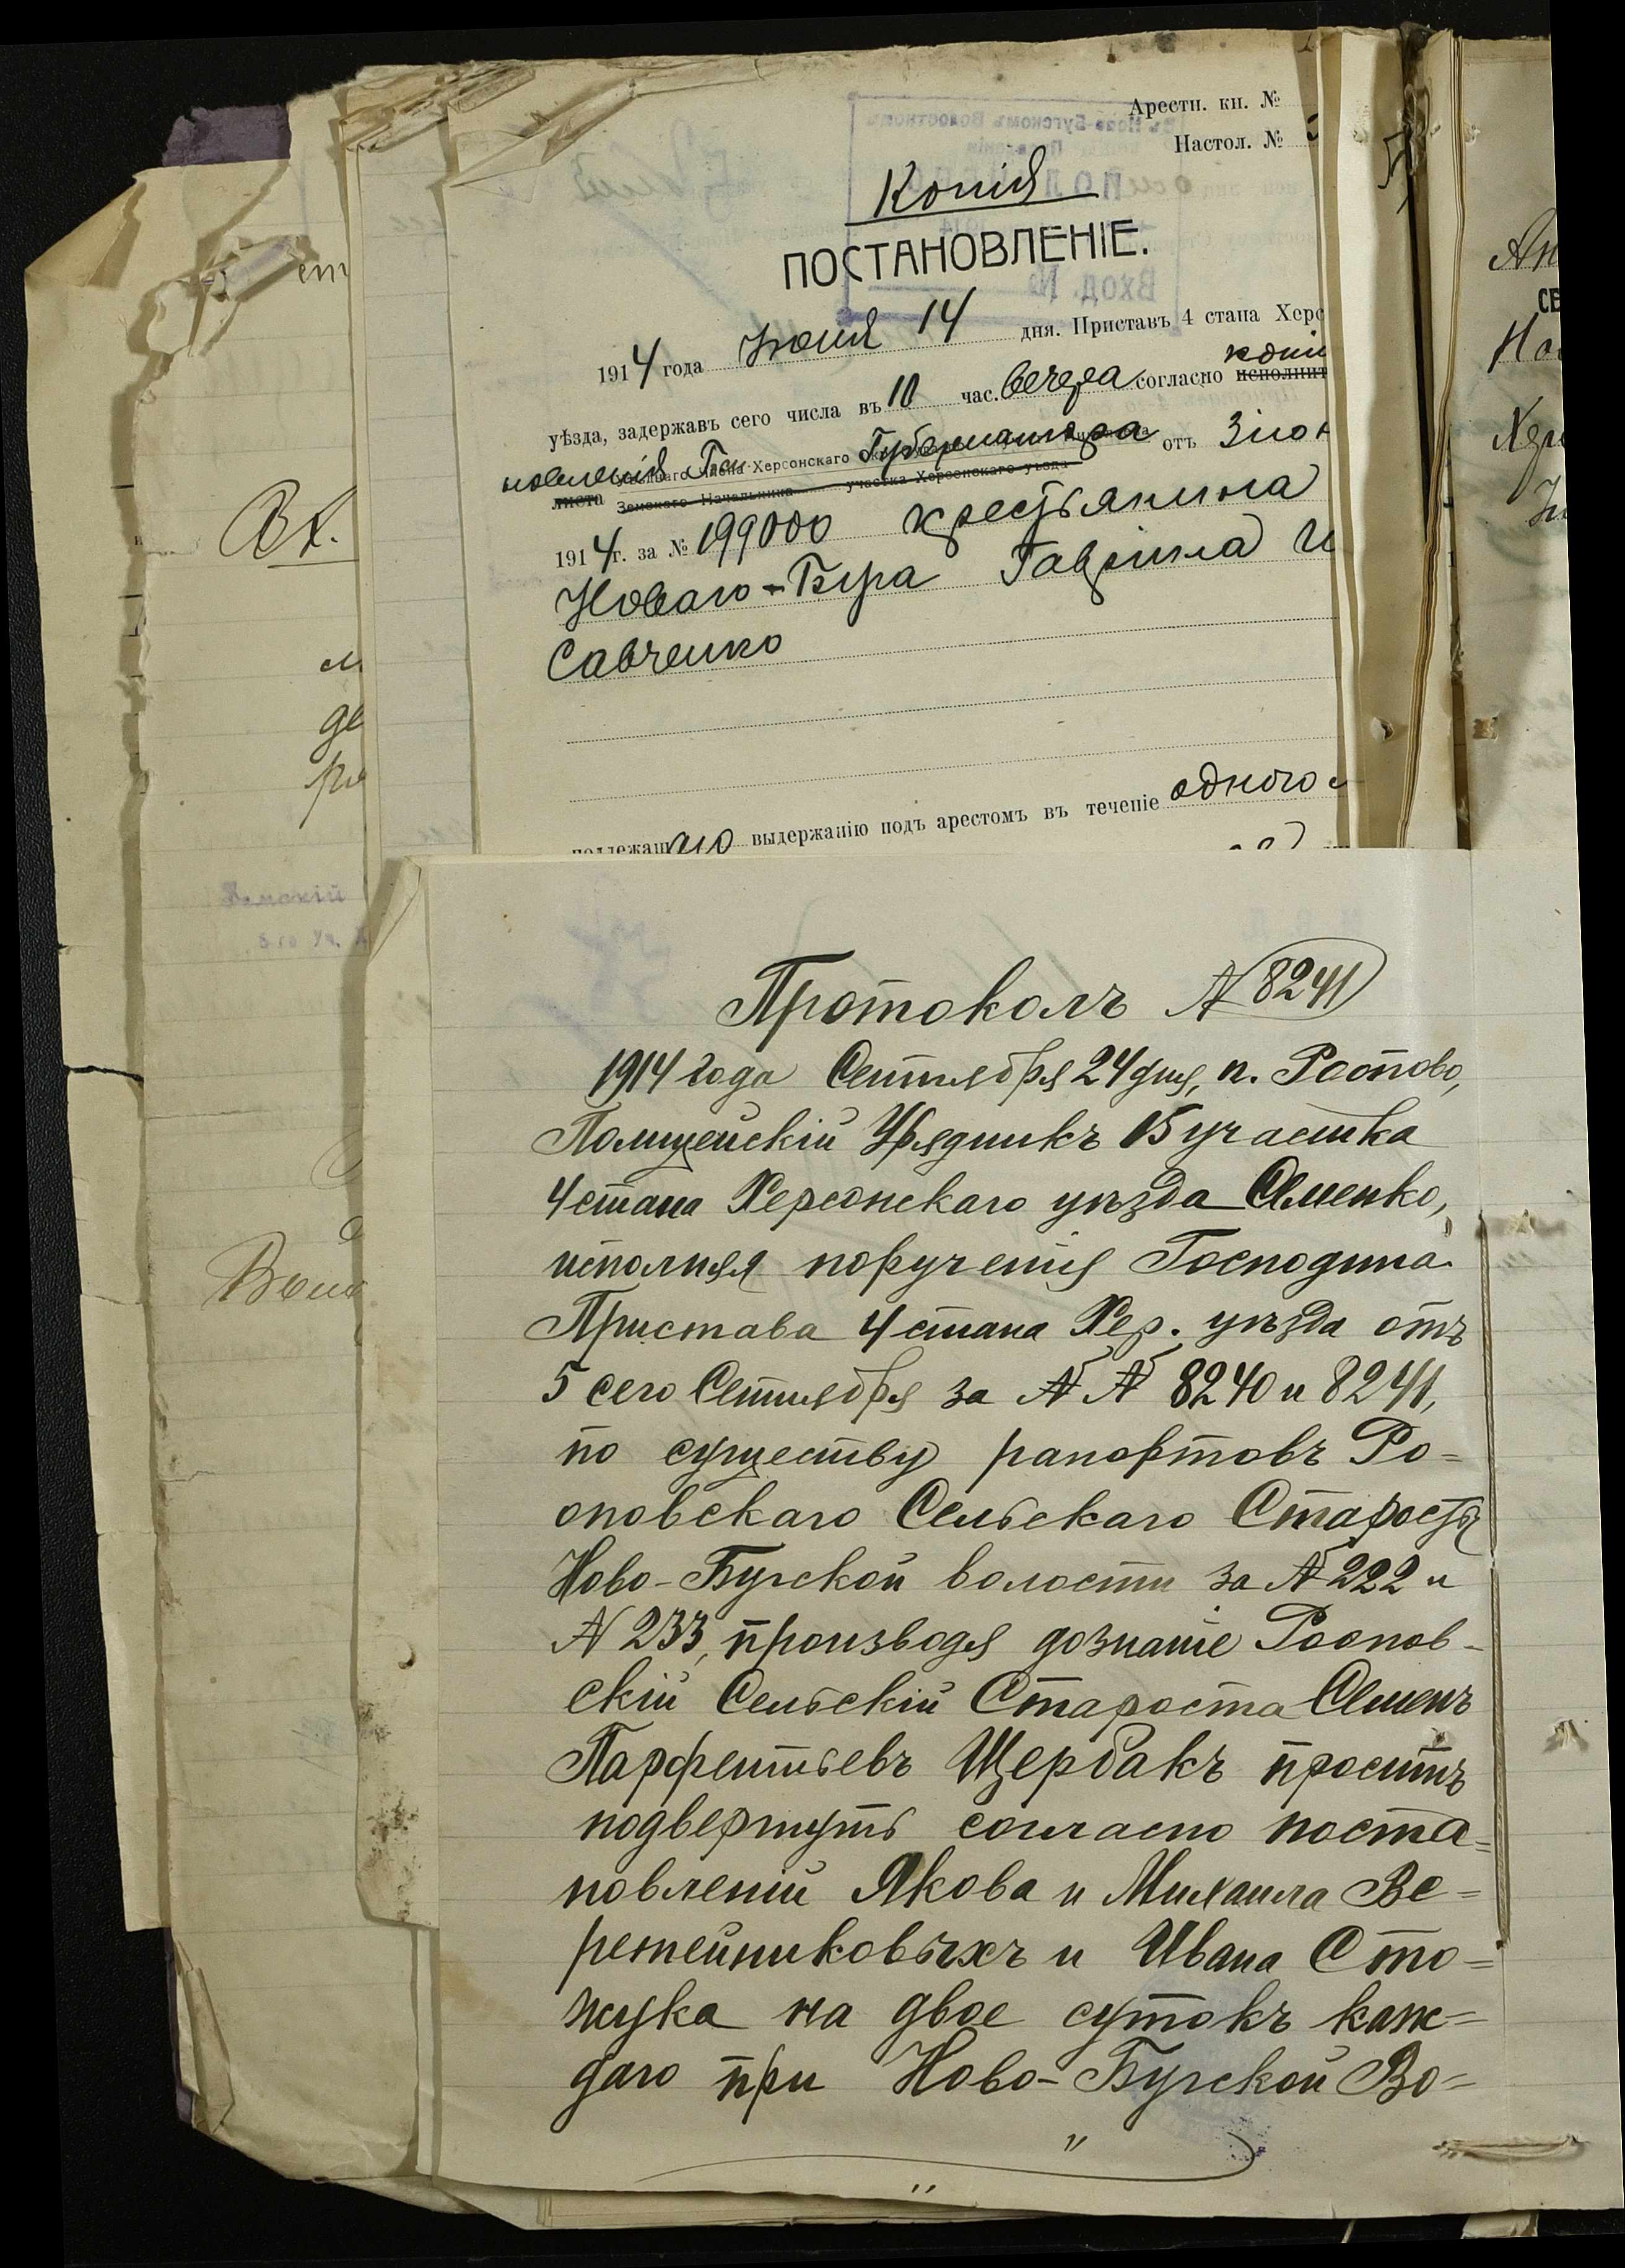 Арестн. кн. №
Настол. №
Копія
ПОСТАНОВЛЕНІЕ.
1914 года Іюня 14 дня. Приставъ 4 стана Херс
уѣзда, задержавъ сего числа въ 10 час. вечера согласно исполнит
копіи
новленія Гна Губернатора отъ 3 іюн
листа
Земскаго Начальника участка Херсонскаго уѣзда
1914 г. за № 199000 крестьянина
Новаго-Буга Гавріила И
Савченко
подлежащаго выдержанію подъ арестомъ въ теченіе одного
Протоколъ № 8241
1914 года Сентября 24 дня, п.
Полицейскій Урядникъ 15 участка
4 стана Херсонскаго уѣзда Семенко,
исполняя порученія Господина
Пристава 4 стана Хер. уѣзда отъ
5 сего Сентября за № № 8240 и 8241,
по существу рапортовъ Ро-
оповскаго Сельскаго Старосты
Ново-Бугской волости за № 222 и
№ 233, производя дознаніе
скій Сельскій Староста Семенъ
Парфентьевъ Щербакъ проситъ
подвергнуть согласно поста-
новленій Якова и Михаила Ве-
ретейниковыхъ и Ивана Сто-
жука на двое сутокъ каж-
даго при Ново-Бугской Во-
Вх.
Земскій